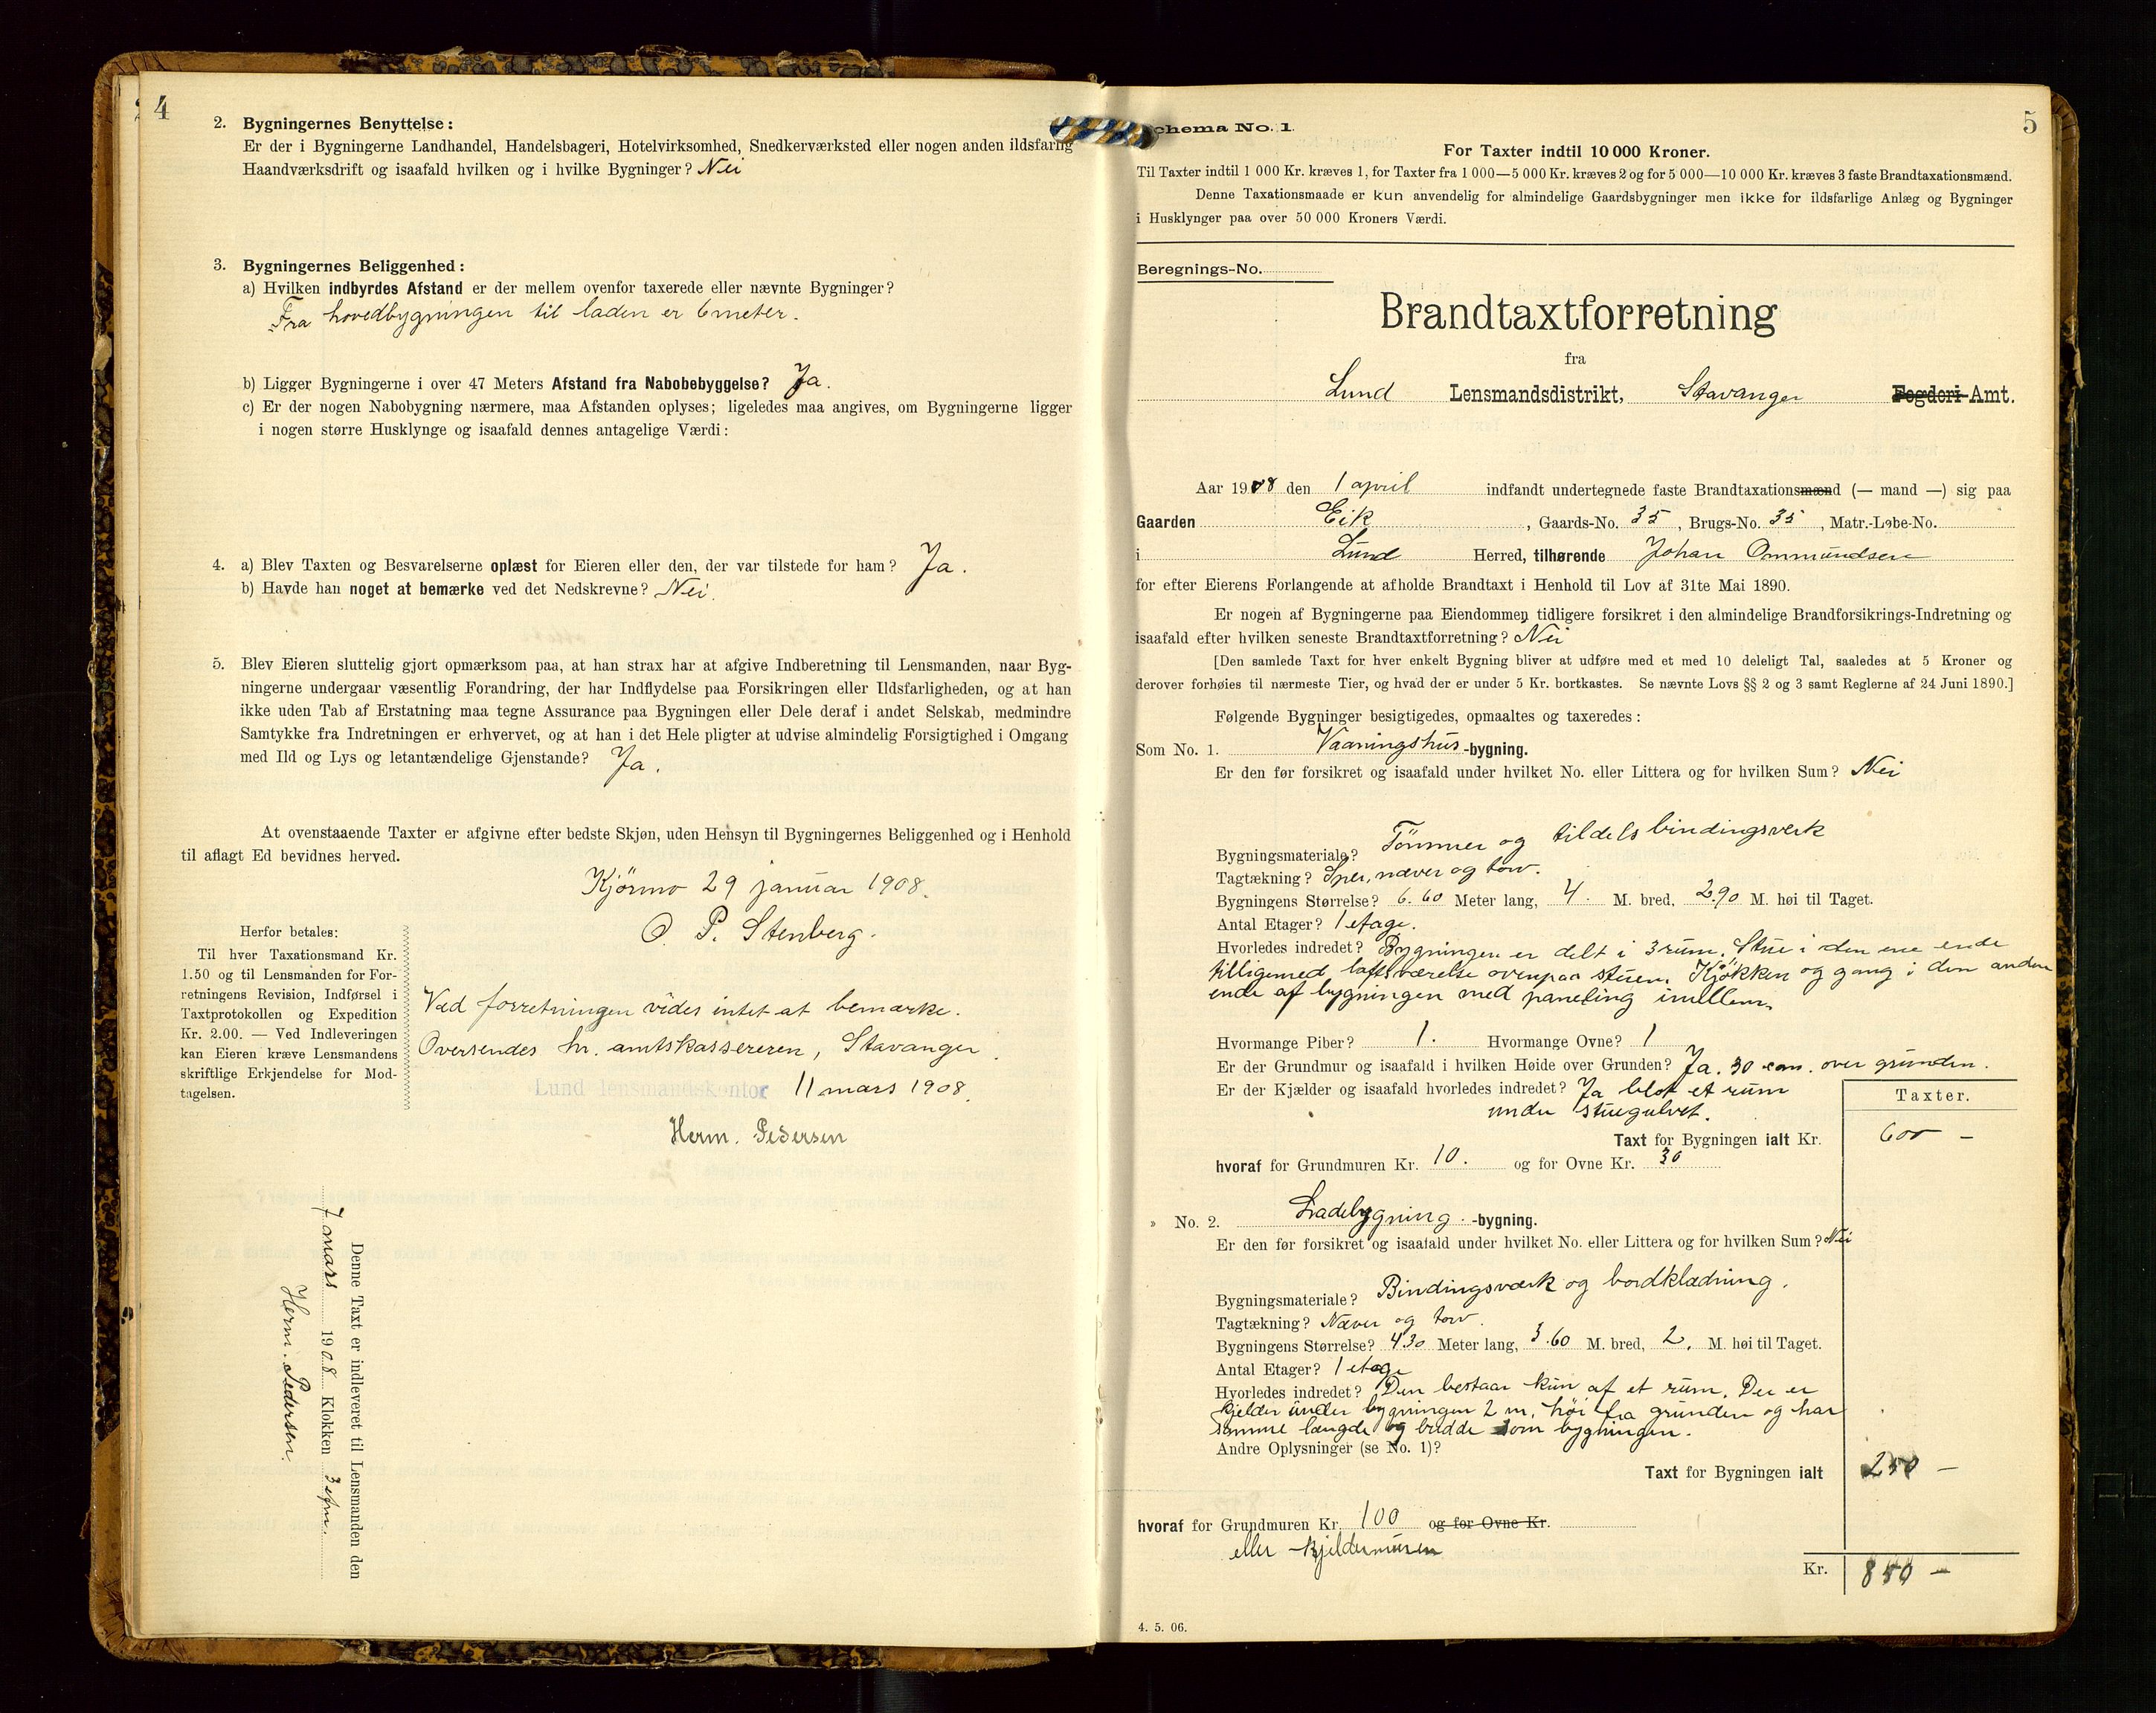 4
2. Bygningernes Benyttelse:
Er der i Bygningerne Landhandel, Handelsbageri, Hotelvirksomhed, Snedkerværksted eller nogen anden ildsfarlig
Haandværksdrift og isaafald hvilken og i hvilke Bygninger? Nei
3. Bygningernes Beliggenhed:
a) Hvilken indbyrdes Afstand er der mellem ovenfor taxerede eller nævnte Bygninger?
Fra hovedbygningen til laden er 6 meter.
b) Ligger Bygningerne i over 47 Meters Afstand fra Nabobebyggelse? Ja.
c) Er der nogen Nabobygning nærmere, maa Afstanden oplyses; ligeledes maa angives, om Bygningerne ligger
i nogen større Husklynge og isaafald dennes antagelige Værdi:
4. a) Blev Taxten og Besvarelserne oplæst for Eieren eller den, der var tilstede for ham? Ja.
b) Havde han noget at bemærke ved det Nedskrevne? Nei.
5. Blev Eieren sluttelig gjort opmærksom paa, at han strax har at afgive Indberetning til Lensmanden, naar Byg-
ningerne undergaar væsentlig Forandring, der har Indflydelse paa Forsikringen eller Ildsfarligheden, og at han
ikke uden Tab af Erstatning maa tegne Assurance paa Bygningen eller Dele deraf i andet Selskab, medmindre
Samtykke fra Indretningen er erhvervet, og at han i det Hele pligter at udvise almindelig Forsigtighed i Omgang
med Ild og Lys og letantændelige Gjenstande? Ja.
At ovenstaaende Taxter er afgivne efter bedste Skjøn, uden Hensyn til Bygningernes Beliggenhed og i Henhold
til aflagt Ed bevidnes herved.
Kjørmo 29 januar 1908.
O. P. Stenberg.
Herfor betales:
Til hver Taxationsmand Kr.
1.50 og til Lensmanden for For-
retningens Revision, Indførsel i
Taxtprotokollen og Expedition
Kr. 2.00. — Ved Indleveringen
kan Eieren kræve Lensmandens
skriftlige Erkjendelse for Mod-
tagelsen.
Ved forretningen vides intet at bemærke.
Oversendes hr. amtskassereren, Stavanger.
Lund lensmandskontor 11 mars 1908.
Herm. Pedersen
Denne Taxt er indleveret til Lensmanden den
7 mars 1908 Klokken 3 efm.
Herm. Pedersen.
5
chema No. 1.
For Taxter indtil 10 000 Kroner.
Til Taxter indtil 1 000 Kr. kræves 1, for Taxter fra 1 000—5 000 Kr. kræves 2 og for 5 000—10 000 Kr. kræves 3 faste Brandtaxationsmænd.
Denne Taxationsmaade er kun anvendelig for almindelige Gaardsbygninger men ikke for ildsfarlige Anlæg og Bygninger
i Husklynger paa over 50 000 Kroners Værdi.
Beregnings-No.
Brandtaxtforretning
fra
Lund Lensmandsdistrikt, Stavanger Fogderi-Amt.
Aar 1908 den 1 april indfandt undertegnede faste Brandtaxationsmænd (— mand —) sig paa
Gaarden Eik, Gaards-No. 35, Brugs-No. 35, Matr.-Løbe-No.
i Lund Herred, tilhørende Johan Ommundsen
for efter Eierens Forlangende at afholde Brandtaxt i Henhold til Lov af 31te Mai 1890.
Er nogen af Bygningerne paa Eiendommen tidligere forsikret i den almindelige Brandforsikrings-Indretning og
isaafald efter hvilken seneste Brandtaxtforretning? Nei
[Den samlede Taxt for hver enkelt Bygning bliver at udføre med et med 10 deleligt Tal, saaledes at 5 Kroner og
derover forhøies til nærmeste Tier, og hvad der er under 5 Kr. bortkastes. Se nævnte Lovs §§ 2 og 3 samt Reglerne af 24 Juni 1890.]
Følgende Bygninger besigtigedes, opmaaltes og taxeredes:
Som No. 1. Vaaningshus-bygning.
Er den før forsikret og isaafald under hvilket No. eller Littera og for hvilken Sum? Nei
Bygningsmateriale? Tømmer og tildels bindingsverk
Tagtækning? Sper, næver og torv.
Bygningens Størrelse? 6.60 Meter lang, 4. M. bred, 2.90 M. høi til Taget.
Antal Etager? 1 etage.
Hvorledes indredet? Bygningen er delt i 3 rum. Stue i den ene ende
tilligemed loftsværelse ovenpaa stuen. Kjøkken og gang i den anden
ende af bygningen med paneling imellem.
Hvormange Piber? 1. Hvormange Ovne? 1
Er der Grundmur og isaafald i hvilken Høide over Grunden? Ja. 30 cm. over grunden.
Er der Kjælder og isaafald hvorledes indredet? Ja blot et rum
under stuegulvet.
Taxter.
Taxt for Bygningen ialt Kr. 600 —
hvoraf for Grundmuren Kr. 10. og for Ovne Kr. 30
» No. 2. Ladebygning.-bygning.
Er den før forsikret og isaafald under hvilket No. eller Littera og for hvilken Sum? Nei
Bygningsmateriale? Bindingsværk og bordklædning.
Tagtækning? Næver og torv.
Bygningens Størrelse? 4.30 Meter lang, 3.60 M. bred, 2. M. høi til Taget.
Antal Etager? 1 etage
Hvorledes indredet? Den bestaar kun af et rum. Der er
kjelder under bygningen 2 m. høi fra grunden og har
samme længde og bredde som bygningen.
Andre Oplysninger (se No. 1)?
Taxt for Bygningen ialt 250 —
hvoraf for Grundmuren Kr. 100 og for Ovne Kr.
eller kjeldermuren
Kr. 850 —
4. 5. 06.